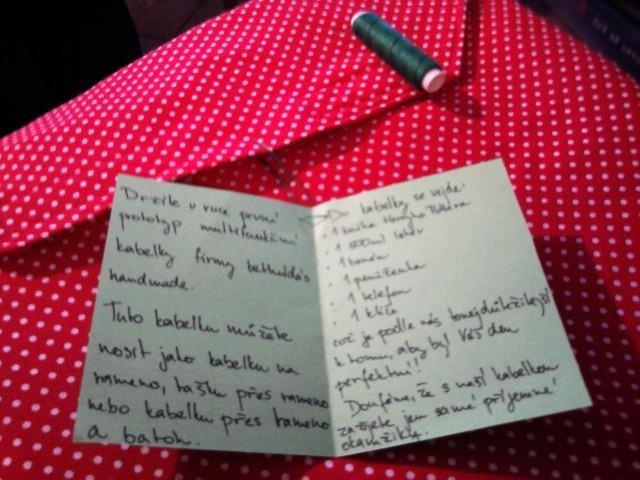 Držíte v ruce první
prototyp multifunkční
kabelky firmy
handmade.
Tuto kabelku můžete
nosit jako kabelku na
rameno, tašku přes rameno
nebo kabelku přes rameno
a batoh.
Do kabelky se vejde:
· 1 kniha Harryho Pottera
· 1 500ml
· 1 banán
· 1 peněženka
· 1 telefon
· 1 klíče
což je podle nás to nejdůležitější
k tomu, aby byl Váš den
perfektní!
Doufáme, že s naší kabelkou
zažijete jen samé příjemné
okamžiky.